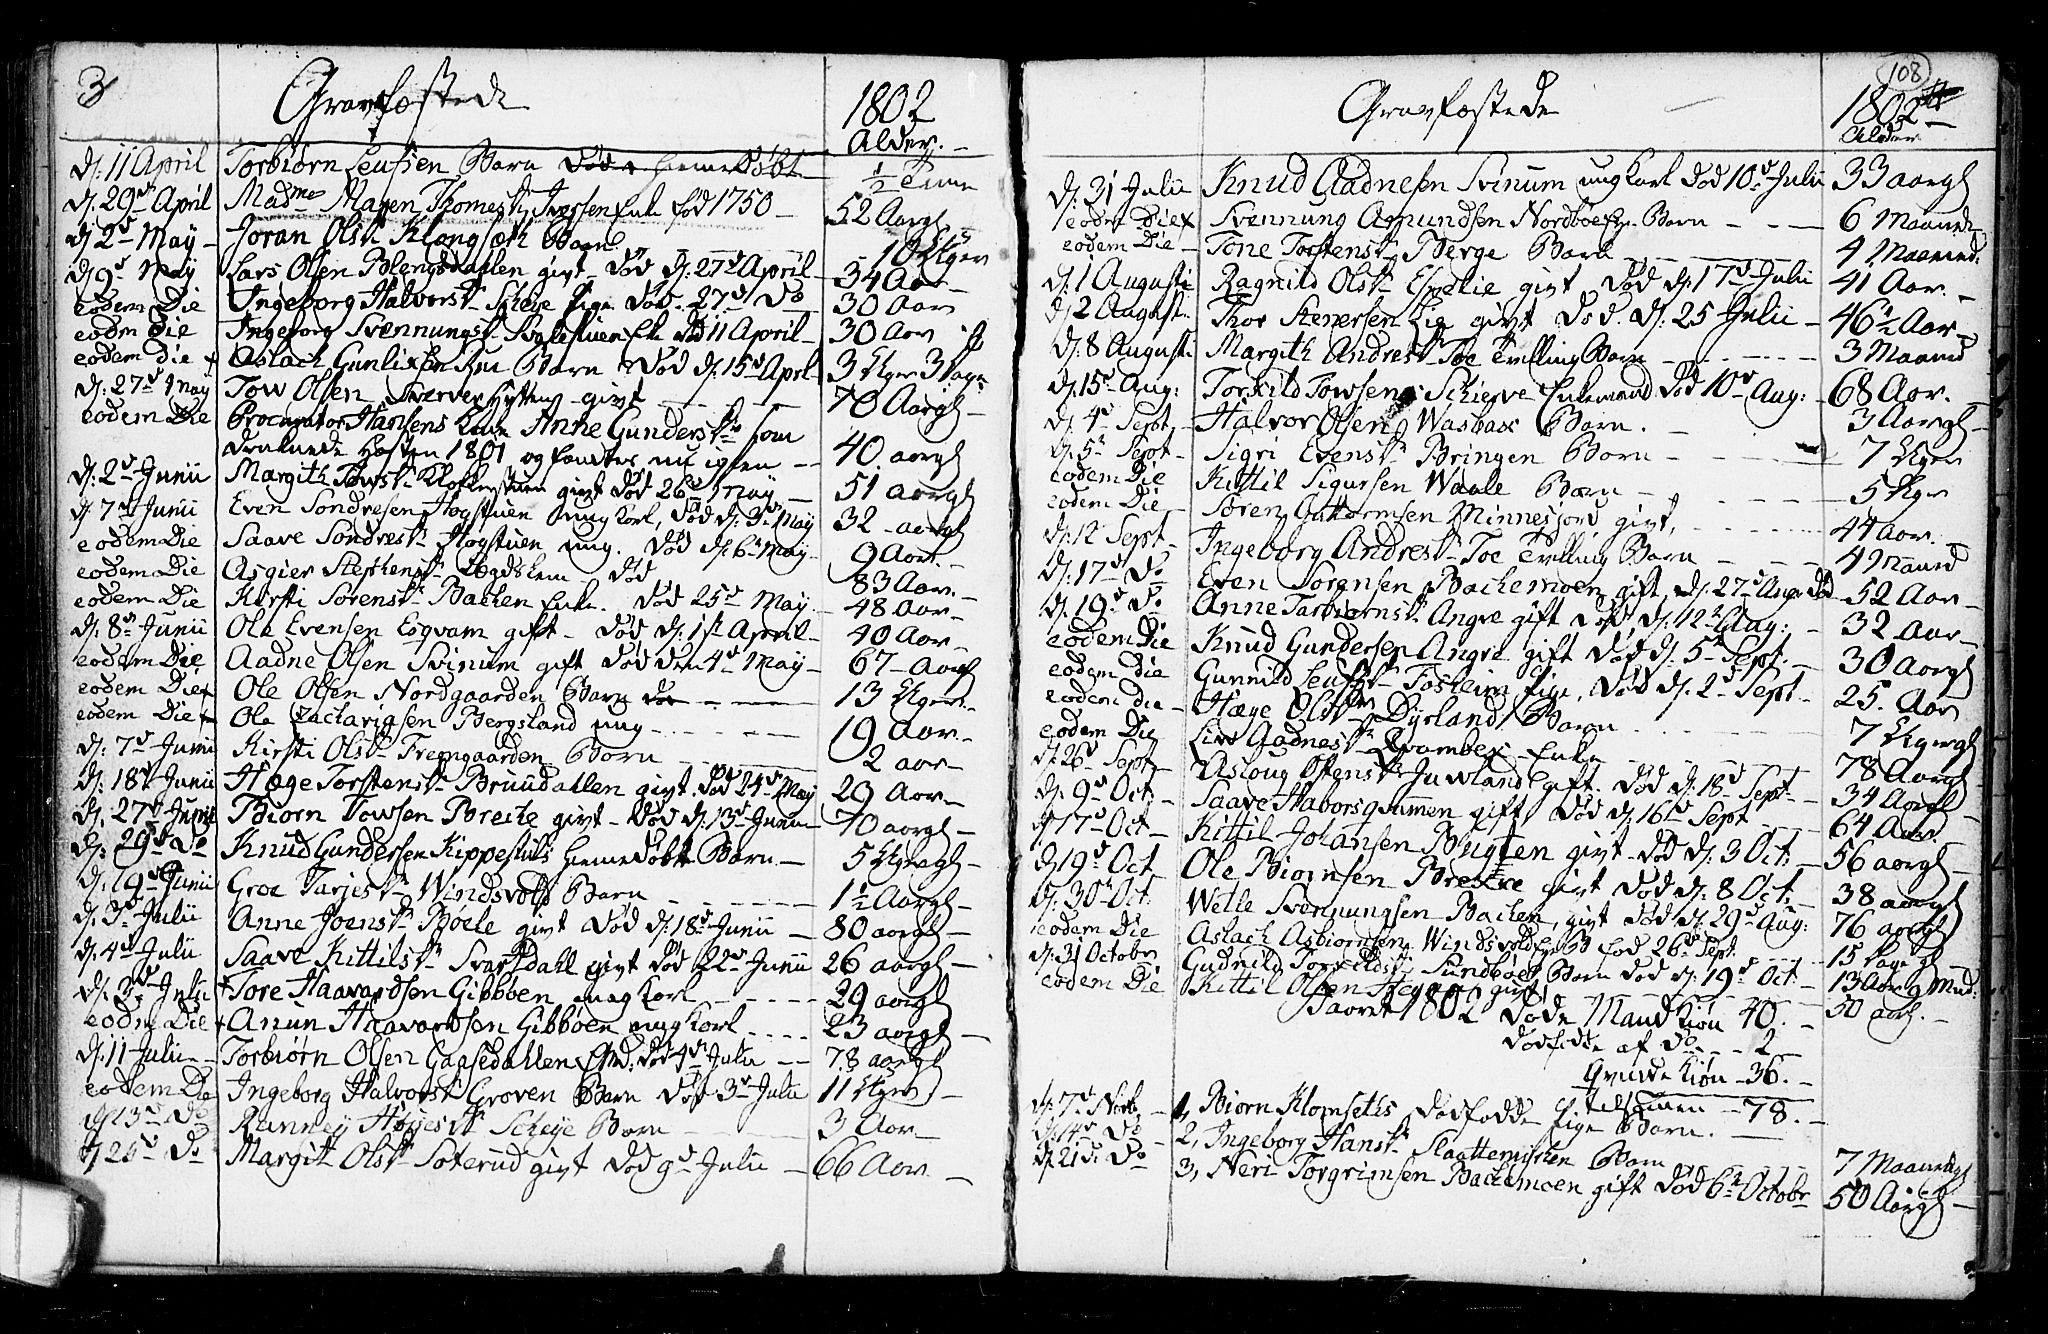 3
Gravfæstede
1802
Alder.
dj: 11 April Torbiørn Leufsen Barn død hiemedøbt ½ Time
dj: 29de April Madme Maren Thomesdr Iverssen Enke fød 1750 52 Aargl
dj 2d May Joran Olsdr Klongseth Barn 10 Uger
dj 9d May Lars Olsen Blengsdahlen givt død dj 27d April 34 Aar
eodem Die Ingeborg Halvorsdr Scheye Pige død 27d do 30 Aar
eodm Die Ingeborg Svennungsdr død 11 April 30 Aar
eodem die Aslach Gunlixsen Rue Barn død dj 15d April 3 Uger 3 Dage
dj: 27d May Tow Olsen givt 70 Aargl
eodem Die Procurator Hansens Kone Anne Gundersdr som
druknede Høsten 1801 og fandtes nu igien 40 aargl
dj: 2d Junii Margith Towsdr Klokkerstuen givt død 26d May 51 aargl
dj 7d Junii Even Sondresen Hogstuen ung Karl, død dj: 3d May 32 aargl
eodem Die Saave Sondresdr Hogstuen ung. død dj. 6te May 9 Aar
eodem Die Asgier Stephensdr Legdskem død 83 Aar
eodem Die Kirsti Sorensdr Bachen Enke. død 25d May 48 Aar
dj: 8d Junii Ole Evensen Eqvam gift død dj: 1st April 40 Aar
eodem Die Aadne Olsen Svinum gift død den 4d May 67 Aargl
eodem Die Ole Olsen Nordgaarden Barn 13 Uger
eodem Die Ole Zachariasen Bergsland ung 19 Aar
dj: 7d Junii Kirsti Olsdr Fremgaarden Barn 2 aar
dj: 18d Junii Hæge Torstensdr Bruudahlen givt død 24d May 29 Aar
dj. 27d Junii Biorn Towsen Breike givt død dj 13d Junii 70 aargl
dj: 29d do Knud Gundersen Kippestuls hiemedøbt Barn 5 Uger
dj: 19d Junii Groe Tarjesdr Windsvold Barn 1½ Aargl
dj: 3d Julii Anne Joensdr Boele givt død dj: 18d Junii 80 aargl
dj: 4d Julii Saave Kittilsdr Svartdahl givt død 22d Junii 26 aargl
dj. 3d Julii Tore Haavardsen Gibbøen ung Karl 29 aargl
eodm Die Anun Haavardsen Gibbøen ung Karl 23 aargl
dj: 11 Julii Torbiørn Olsen Gaasedallen Em: død 4d Julii 78 aargl
eodem Die Ingeborg Halvorsdr Groven Barn død 3d Julii 11 Uger
dj 13d do Ranney Hoyesdr Scheye Barn 3 Aar
dj 25d do Margit Olsdr Soterud givt død 9d Julii 66 Aar
108
Gravfæstede
1802
Alder.
dj: 31 Julii Knud Aadnesen Svinum ung Karl død 10d Julii 33 aargl
eodem Die Svennung Asmundsen Nordbøe Barn 6 Maaned
eodem Die Tone Torstensdr Berge Barn 4 Maaned
dj: 1 Augusti Ragnild Olsdr Espelie givt død dj: 17d Julii 41 Aar
dj 2 August Thor Stenersen Lie givt død dj: 25 Julii 46½ Aar
dj: 8 Augusti Margith Andresdr Toe Tvilling Barn 3 Maaned
dj. 15d Aug: Torkild Towsen Schierve Enkemand død 10d Aug: 68 Aar
dj. 4d Sept, Halvor Olsen Wasbax Barn. 3 Aargl
dj. 5d Sept Sigri Evensdr Bringen Barn 7 Uger
eodem Die Kittil Sigursen Waale Barn 5 Uger
eodem Die Soren Guttormsen Minnesjord givt, 44 aar
dj. 12 Sept Ingeborg Andresdr Toe Tvilling Barn 4 Maand
dj. 17d do Even Sorensen Bachemoen gift, dj. 27d Aug død 52 Aar
dj. 19d do Anne Tarbiørnsdr Angre gift død dj. 12d Aug: 32 aar
eodem Die Knud Gundersen Angre gift død dj. 5d Sept. 30 aargl
eodem Die Gunnild Leufsdr Fosheim Pige, død dj. 2d Sept 25 Aar
eodem die Hæge Olsdr Dyrland Barn 7 Uger
eodem Die Live Aadnesdr Enke 78 Aargl
dj: 26d Sept Aslaug Ostensdr Juwland gift. død dj: 18d Sept 34 Aargl
dj. 9d Oct, Saave Haavors gift død dj 16d Sept 64 Aar
dj 17d Oct Kittil Johansen Bugten givt død dj. 3 Oct: 56 aargl
dj 19d Oct Ole Biornsen Brekke givt død dj. 8 Oct, 38 aargl
dj. 30d Oct: Welle Svennungsen Bachen, givt, død dj. 29d Aug: 76 aargl
eodem Die Aslach Asbiornsen Windsvold fød 26d Sept. 15 Dage gl
dj. 31 October Gudnild Torkildsdr Sundbøe Barn død dj. 19d Oct: 13 Aar 9 Mnd:
eodem Die Kittil Olsen givt 50 aargl.
I Aaret 1802 døde Mandkiøn 40.
dødfødde af do 2
Qvindekiøn 36.
tilsamen 78.
dj. 7d Novb. 1, Biorn Klomseths dødfødde Pige Barn.
dj. 14d do 2, Ingeborg Hansdr Slaattemichen Barn 7 Maaned gl
dj 21d do 3, Neri Torgrimsen Bachemoen gift død 6te Octobr 50 Aargl